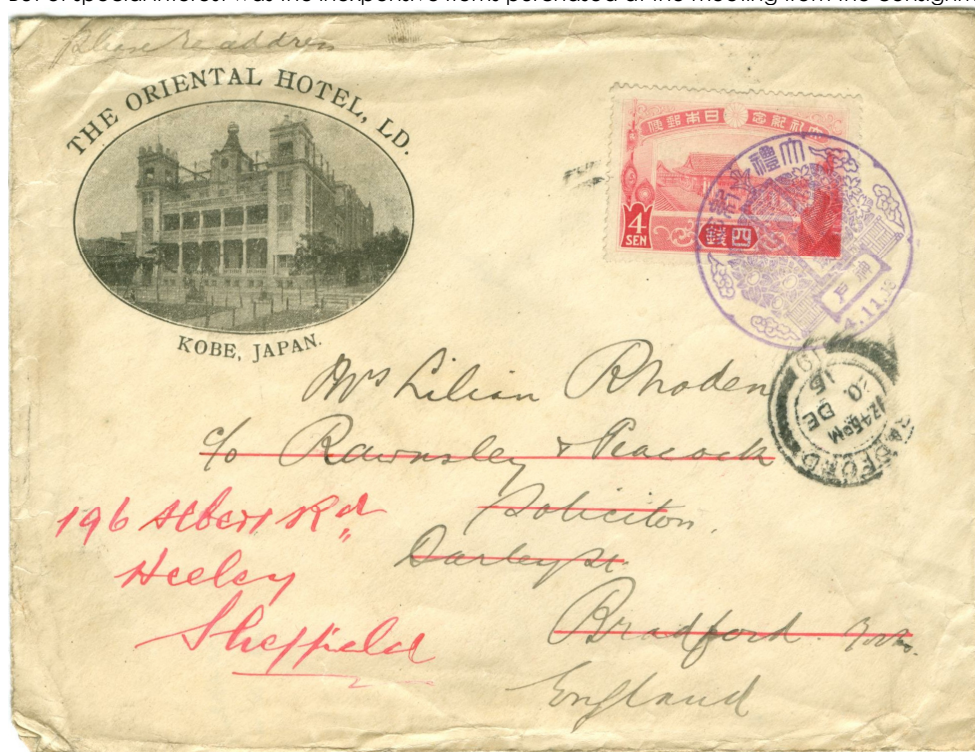 Please re address
THE ORIENTAL HOTEL, LD.
KOBE, JAPAN.
念紀礼大 便郵本日
4
SEN
四
大禮
神戸
4.11.
BRADFORD
12 45 PM
DE
15
Mrs Lilian Rhoden
c/o Rawnsley & Peacock
Solicitors.
Darley St.
Bradford. Yorks.
England
196 Albert Rd
Heeley
Sheffield